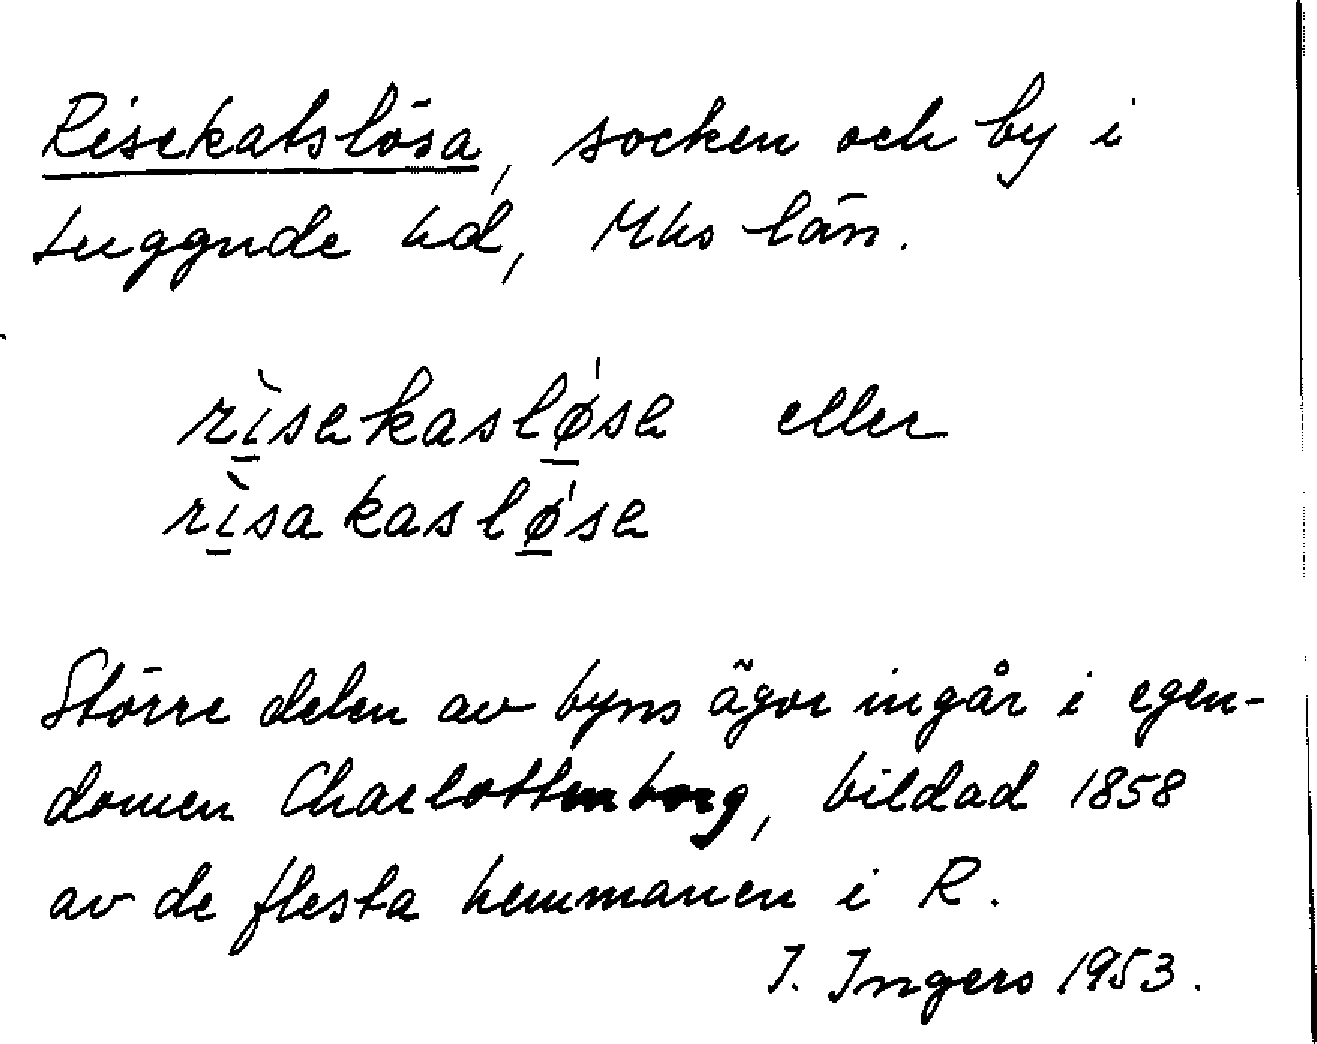 Risekatslösa, socken och by i
Luggude hd, Mhs län.
rìsekasløse eller
rìsakasløse
Större delen av byns ägor ingår i egen-
domen Charlottenborg, bildad 1858
av de flesta hemmanen i R.
I. Ingers 1953.